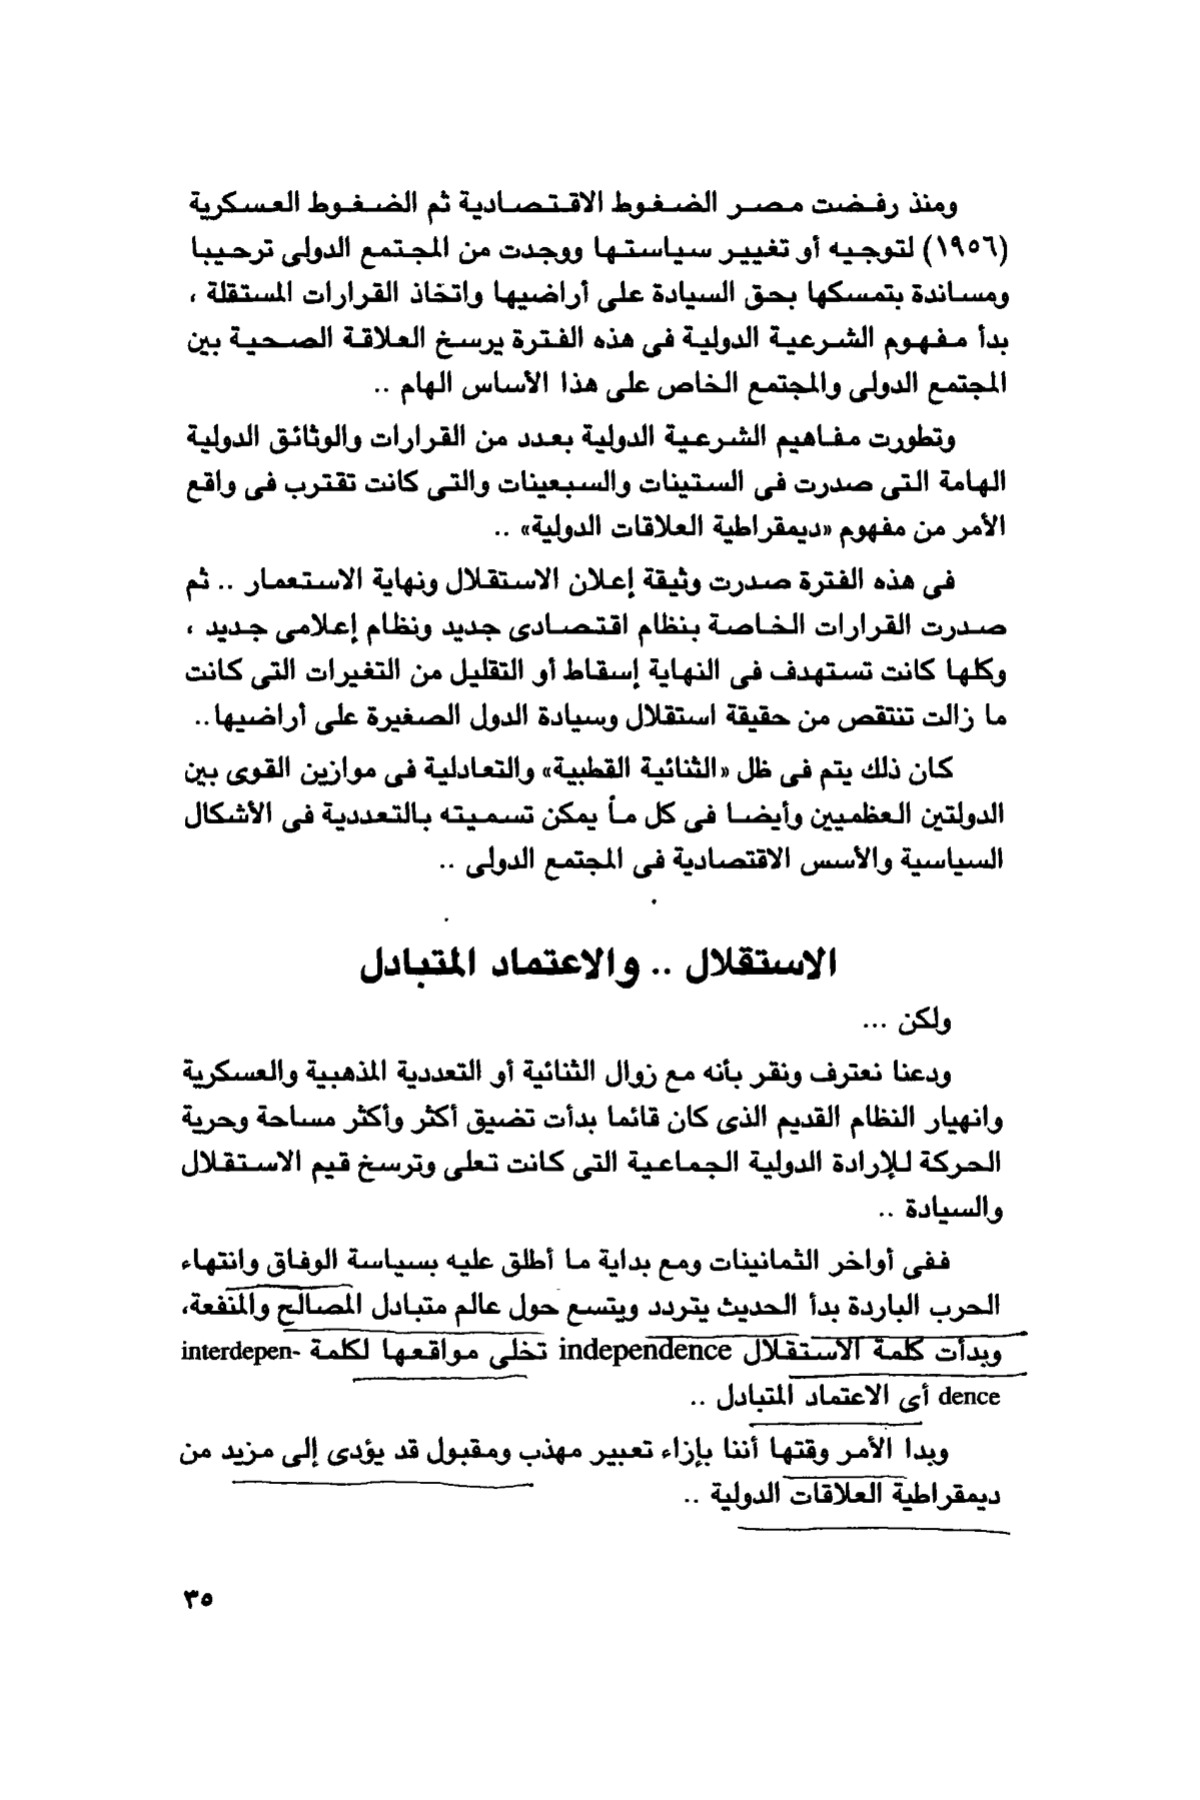 ومنذ رفضت مصر الضغوط الاقتصادية ثم الضغوط العسكرية
(١٩٥٦) لتوجيه أو تغيير سياستها ووجدت من المجتمع الدولى ترحيبا
ومساندة بتمسكها بحق السيادة على أراضيها واتخاذ القرارات المستقلة ،
بدأ مفهوم الشرعية الدولية فى هذه الفترة يرسخ العلاقة الصحية بين
المجتمع الدولى والمجتمع الخاص على هذا الأساس الهام ..
وتطورت مفاهيم الشرعية الدولية بعدد من القرارات والوثائق الدولية
الهامة التى صدرت فى الستينات والسبعينات والتى كانت تقترب فى واقع
الأمر من مفهوم «ديمقراطية العلاقات الدولية» ..
فى هذه الفترة صدرت وثيقة إعلان الاستقلال ونهاية الاستعمار .. ثم
صدرت القرارات الخاصة بنظام اقتصادى جديد ونظام إعلامى جديد ،
وكلها كانت تستهدف فى النهاية إسقاط أو التقليل من التغيرات التى كانت
ما زالت تنتقص من حقيقة استقلال وسيادة الدول الصغيرة على أراضيها..
كان ذلك يتم فى ظل «الثنائية القطبية» والتعادلية فى موازين القوى بين
الدولتين العظميين وأيضا فى كل ما يمكن تسميته بالتعددية فى الأشكال
السياسية والأسس الاقتصادية فى المجتمع الدولى ..
الاستقلال .. والاعتماد المتبادل
ولكن ...
ودعنا نعترف ونقر بأنه مع زوال الثنائية أو التعددية المذهبية والعسكرية
وانهيار النظام القديم الذى كان قائما بدأت تضيق أكثر وأكثر مساحة وحرية
الحركة للإرادة الدولية الجماعية التى كانت تعلى وترسخ قيم الاستقلال
والسيادة ..
ففى أواخر الثمانينات ومع بداية ما أطلق عليه بسياسة الوفاق وانتهاء
الحرب الباردة بدأ الحديث يتردد ويتسع حول عالم متبادل المصالح والمنفعة،
وبدأت كلمة الاستقلال independence تخلى مواقعها لكلمة interdepen-
dence أى الاعتماد المتبادل ..
وبدا الأمر وقتها أننا بإزاء تعبير مهذب ومقبول قد يؤدى إلى مزيد من
ديمقراطية العلاقات الدولية ..
٣٥